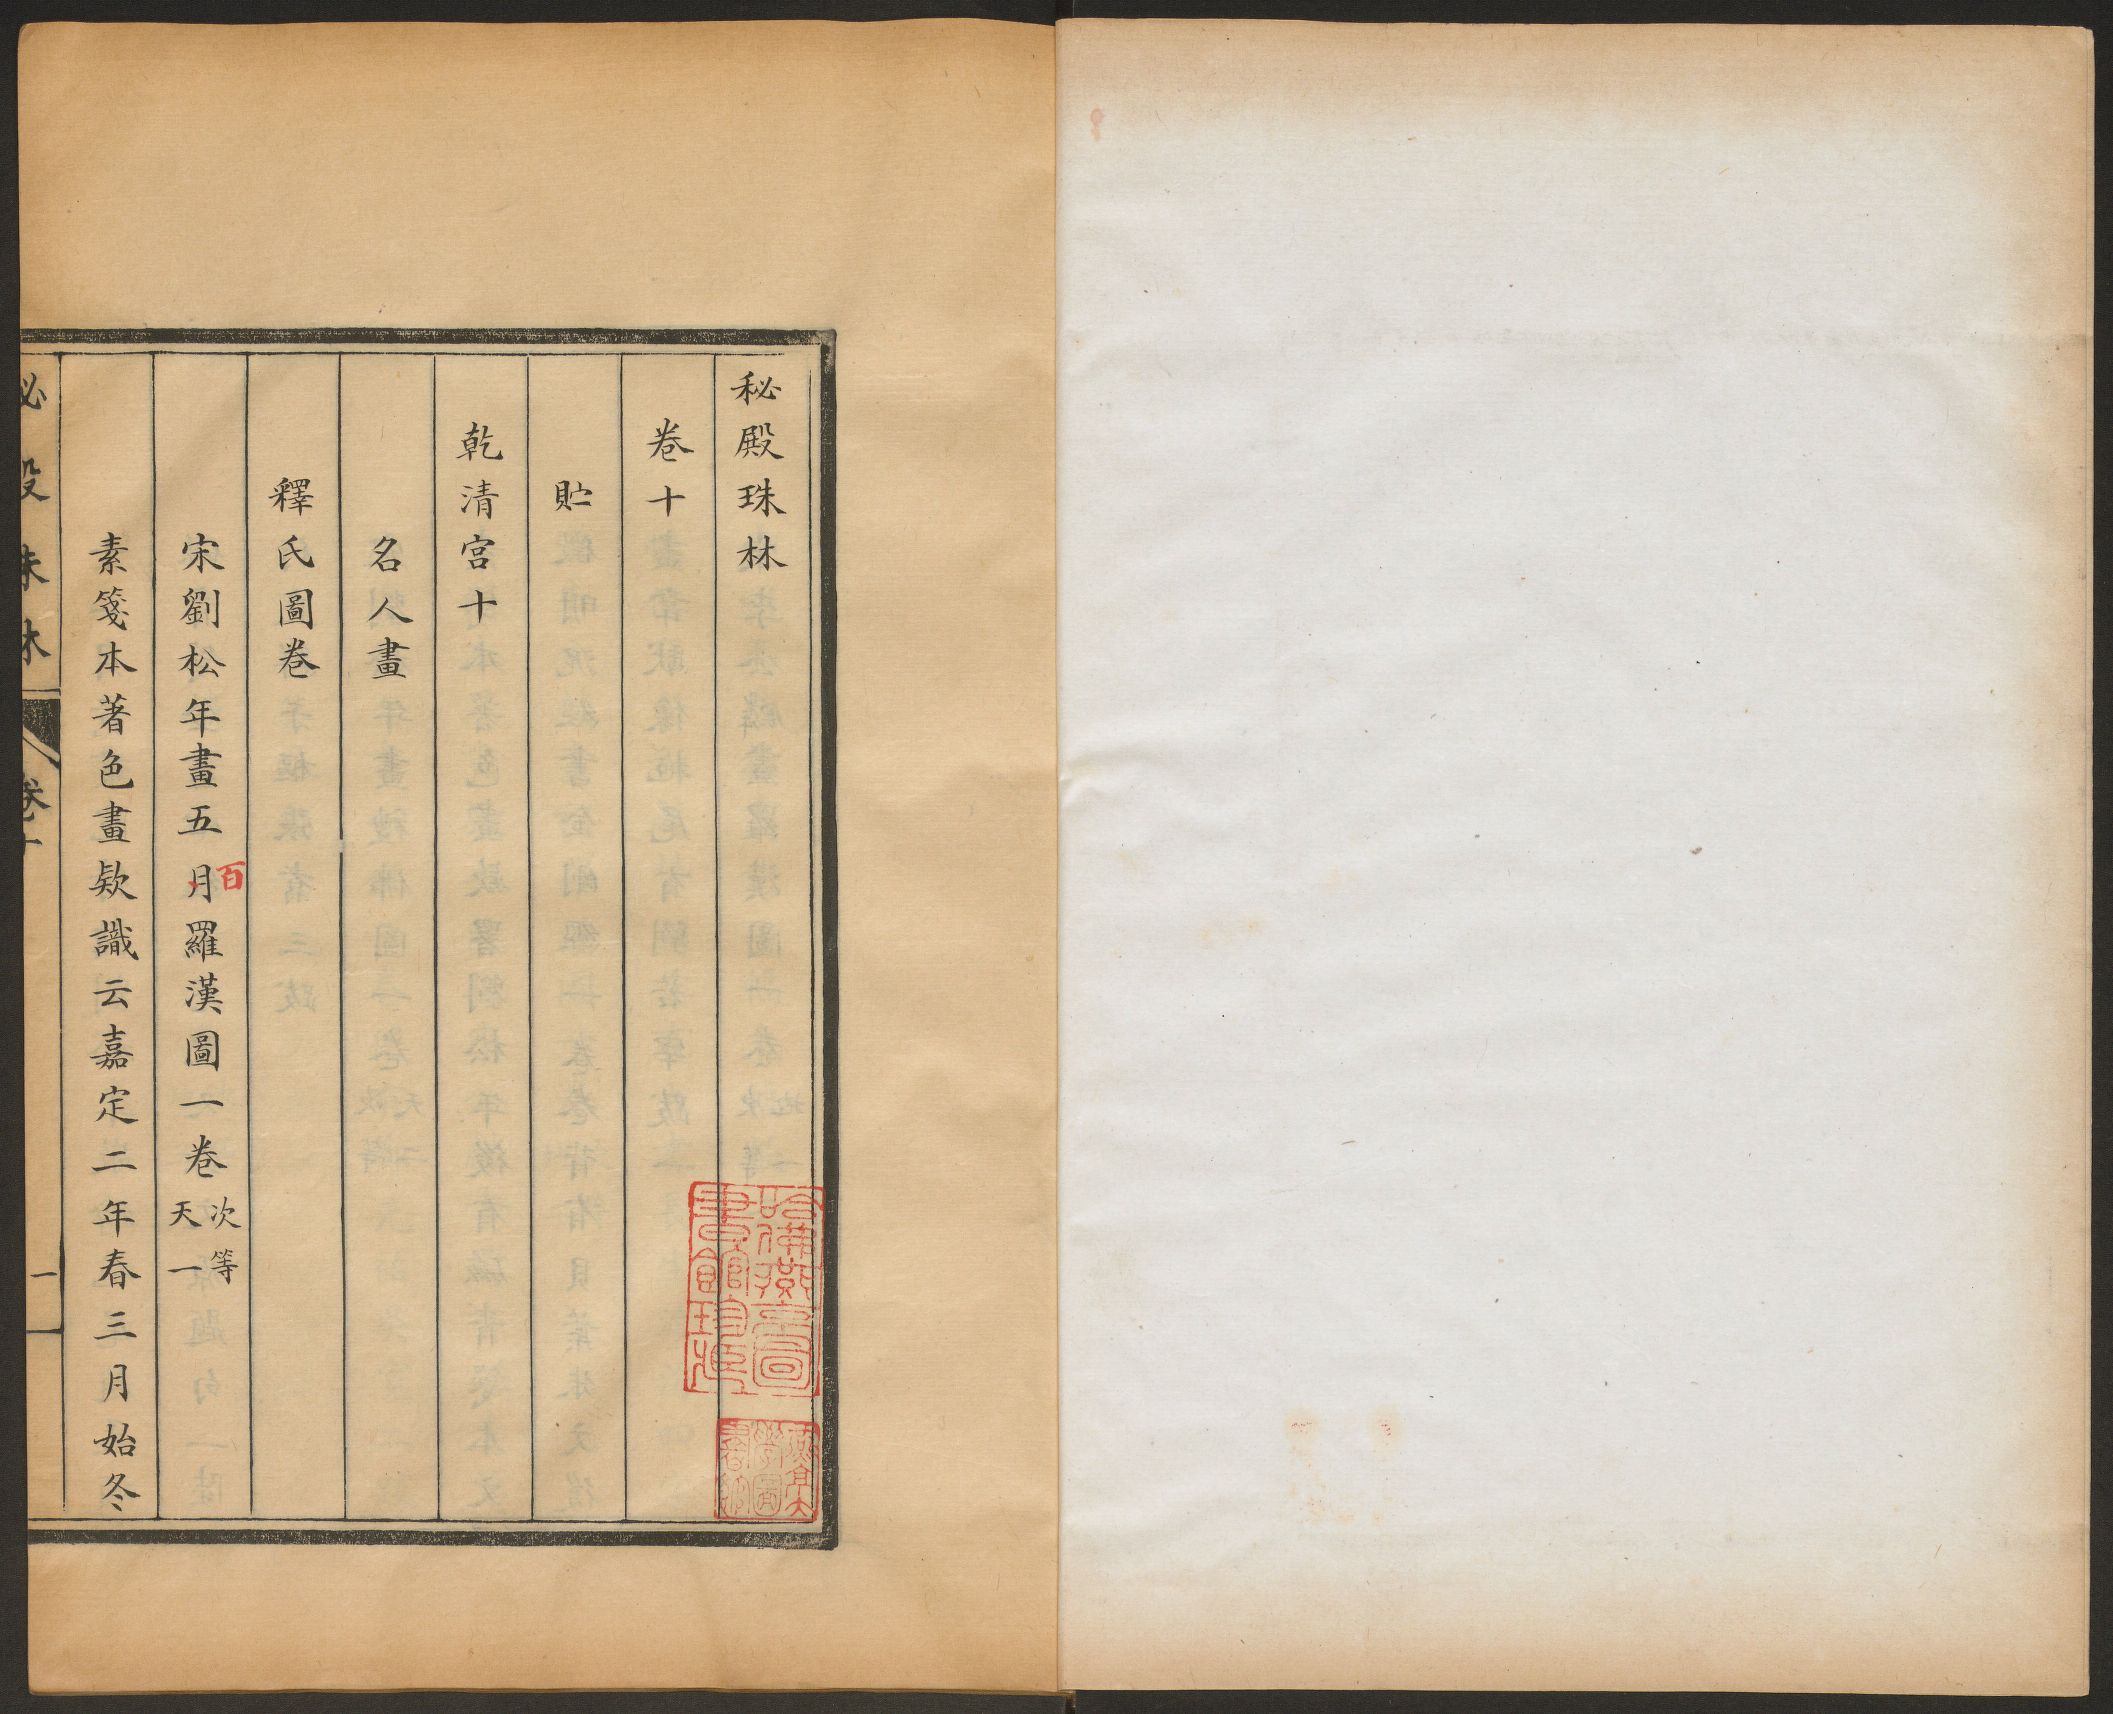 秘殿珠林
卷十
貯
乾清宮十
名人畫
釋氏圖卷
宋劉松年畫五月羅漢圖一卷 次等 天一
百
素箋本著色畫欵識云嘉定二年春三月始冬
秘殿珠林 卷十 一
哈佛燕京圖書館珍藏